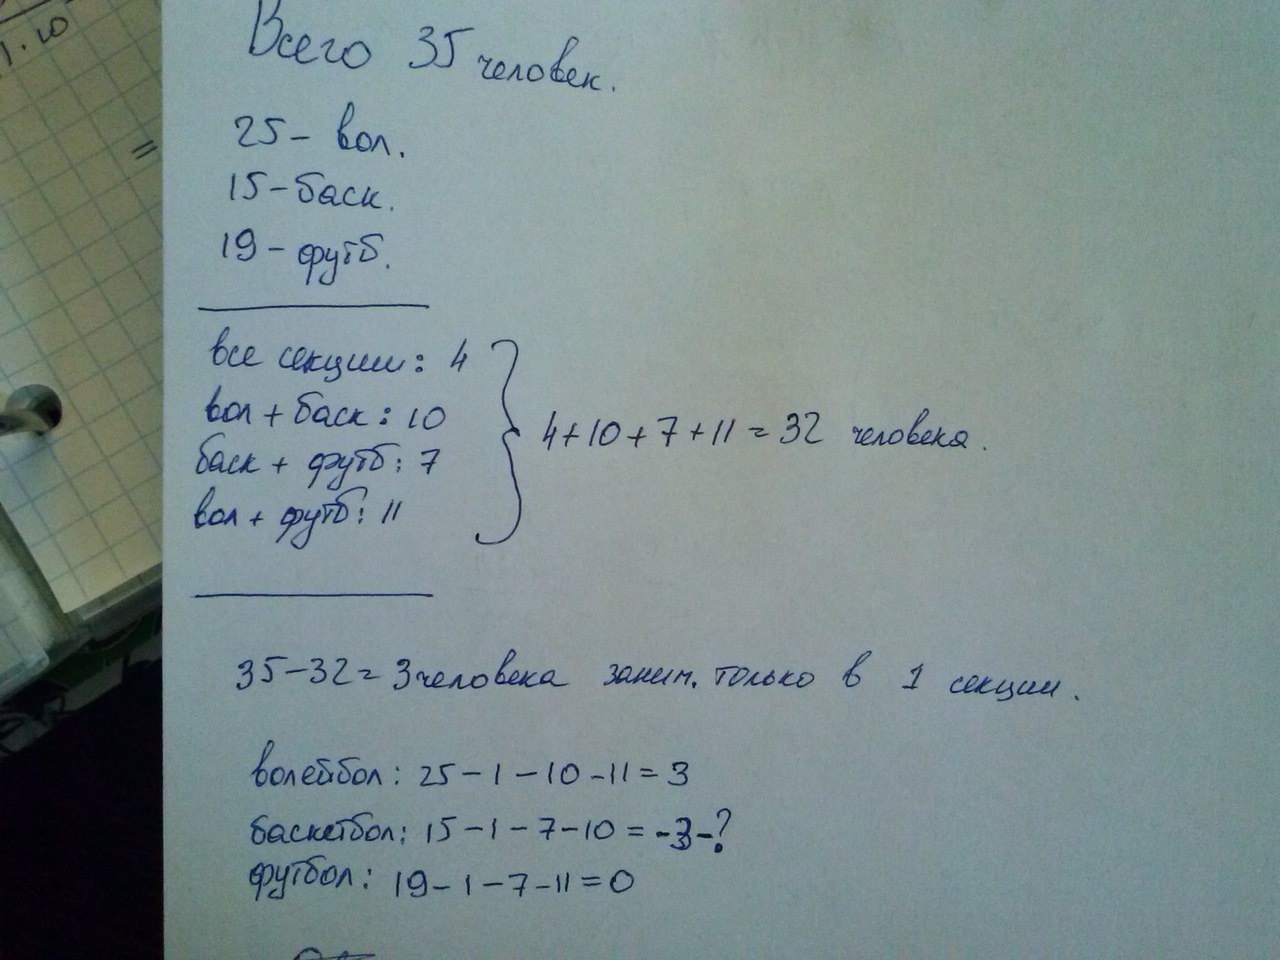 1.10
=
Всего 35 человек.
25 - вол.
15 - баск.
19 - футб.
все секции: 4
вол + баск: 10
баск + футб: 7
вол + футб: 11
4 + 10 + 7 + 11 = 32 человека.
35 - 32 = 3 человека заним. только в 1 секции.
волейбол: 25 - 1 - 10 - 11 = 3
баскетбол: 15 - 1 - 7 - 10 = -3 - ?
футбол: 19 - 1 - 7 - 11 = 0